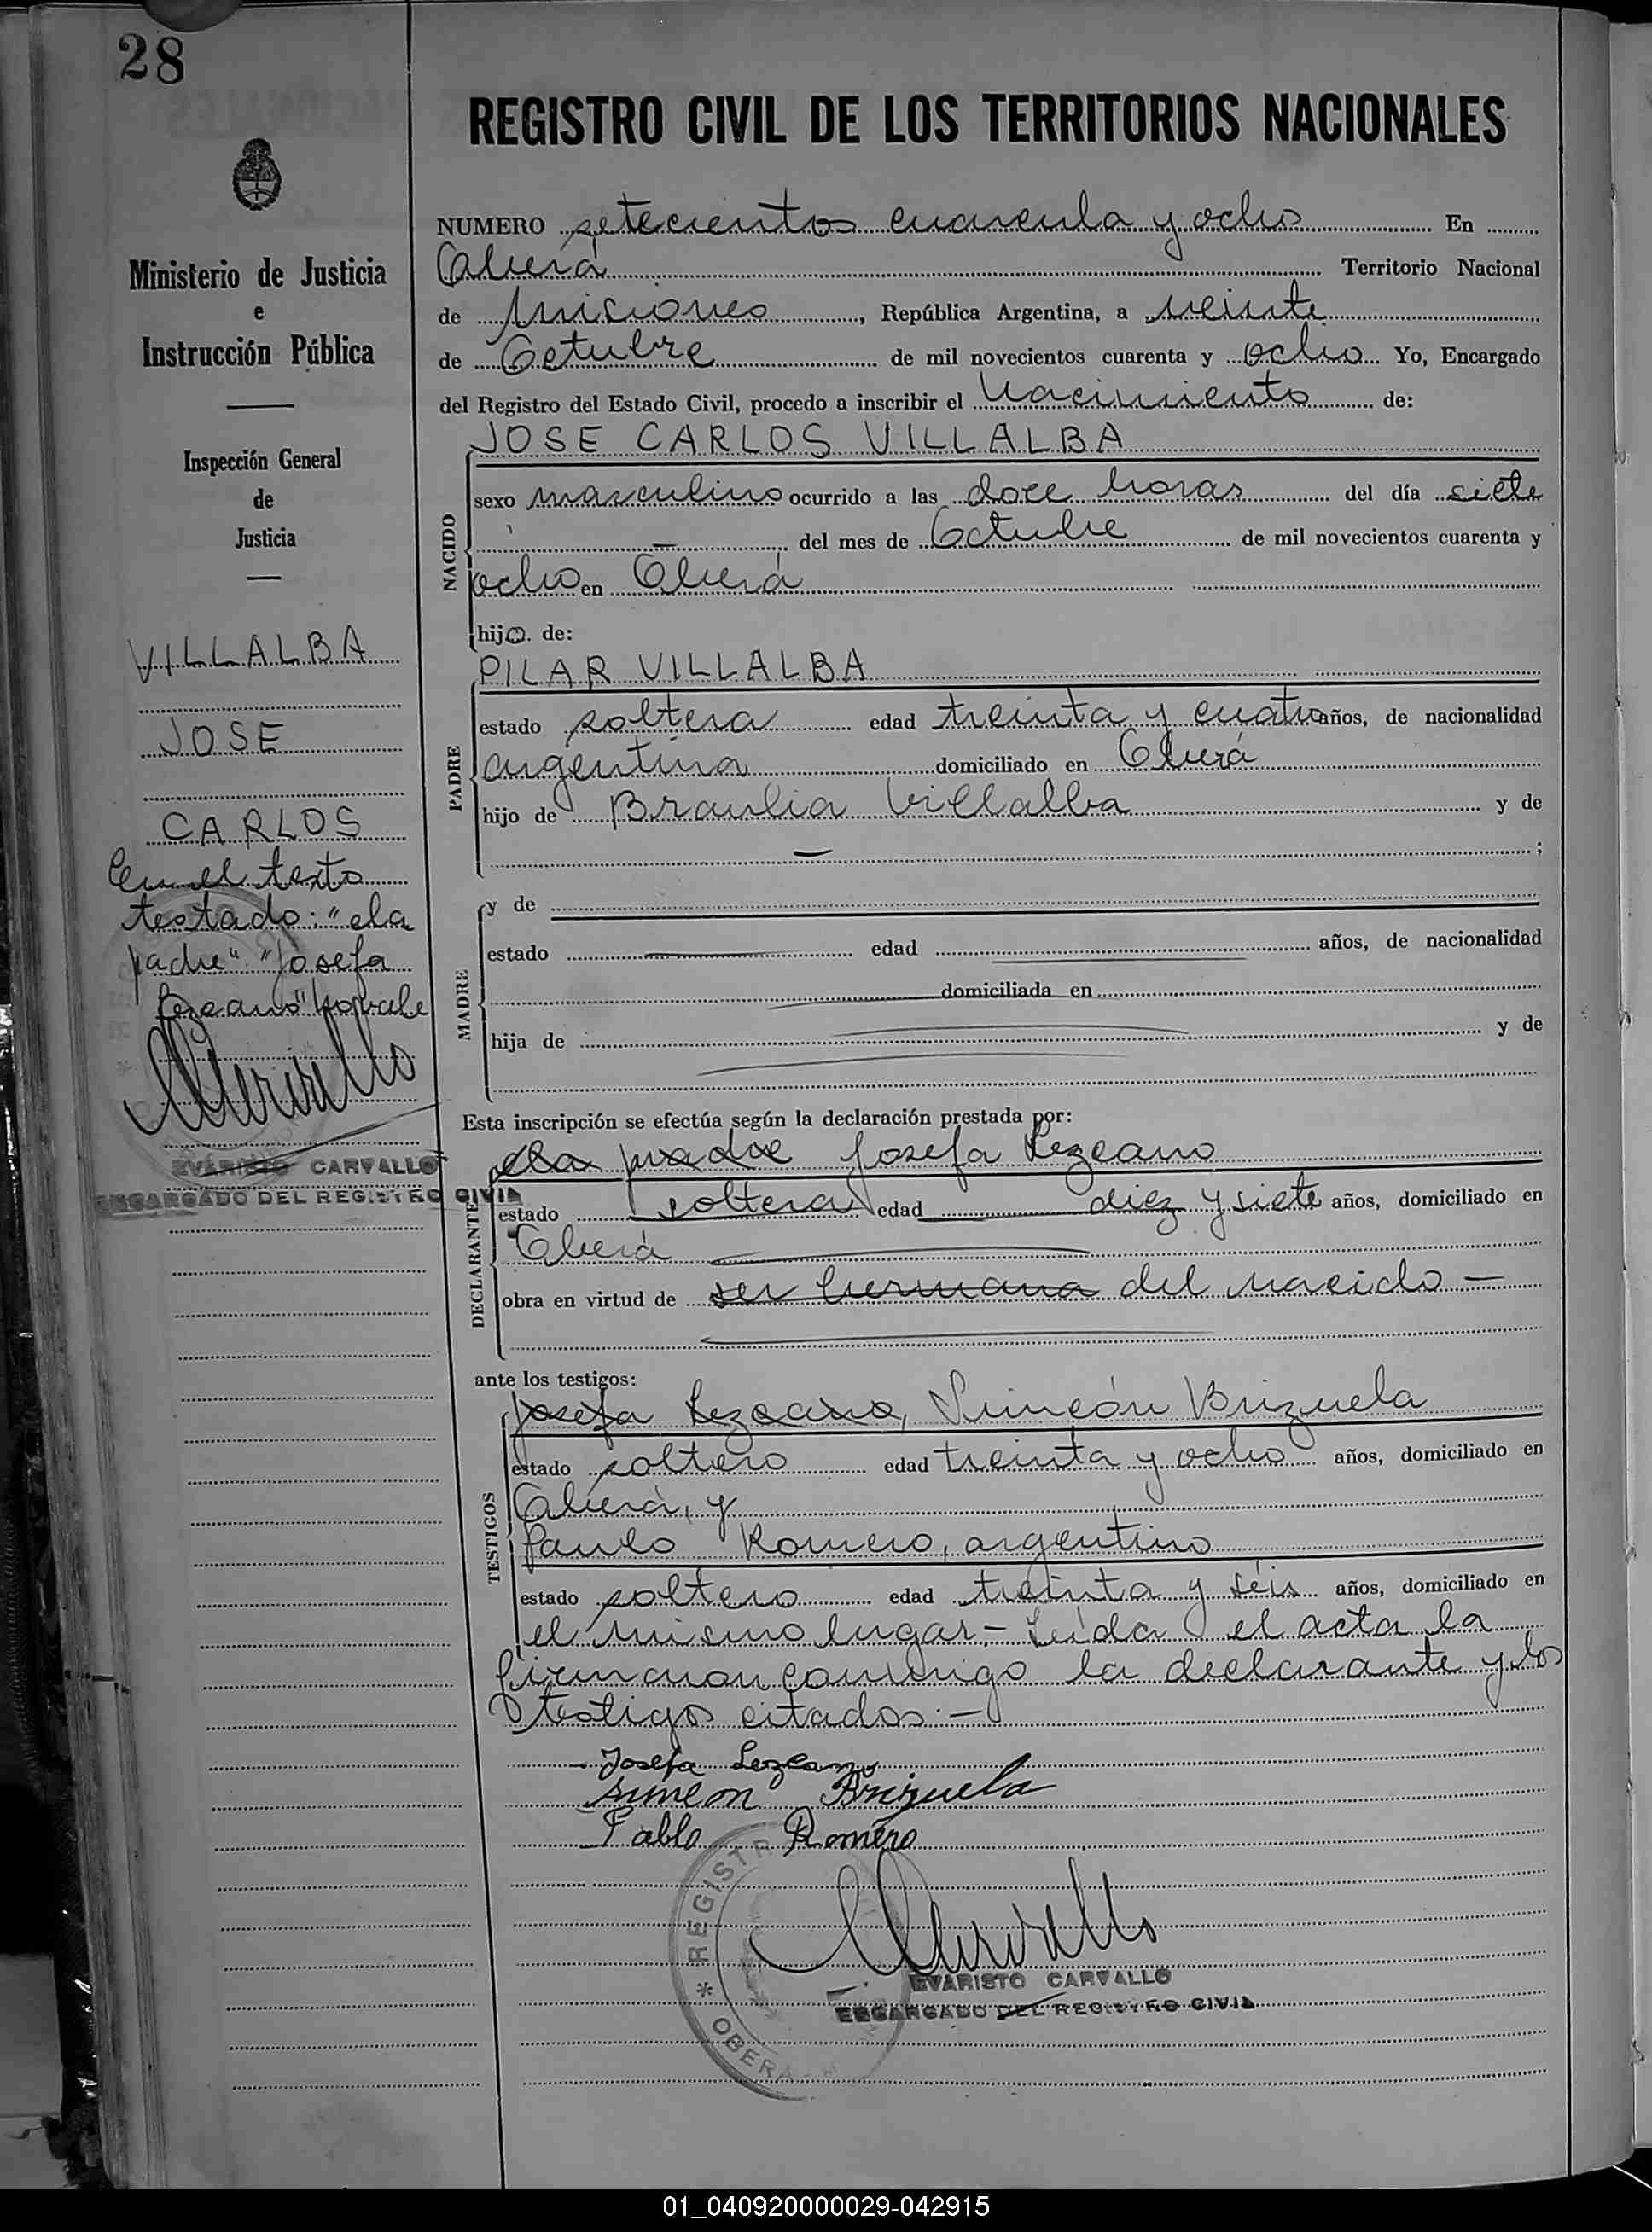 28
REGISTRO CIVIL DE LOS TERRITORIOS NACIONALES
Ministerio de Justicia
e
Instrucción Pública
Inspección General
de
Justicia
VILLALBA
JOSE
CARLOS
En el texto
testado: "ela
padre" "Josefa
Lezcano" no vale
EVARISTO CARVALLO
ENCARGADO DEL REGISTRO CIVIL
NUMERO setecientos cuarenta y ocho En
Oberá Territorio Nacional
de Misiones, República Argentina, a veinte
de Octubre de mil novecientos cuarenta y ocho Yo, Encargado
del Registro del Estado Civil, procedo a inscribir el Nacimiento de:
JOSE CARLOS VILLALBA
NACIDO
sexo masculino ocurrido a las doce horas del día siete
del mes de Octubre de mil novecientos cuarenta y
ocho en Oberá
hijo. de:
PILAR VILLALBA
PADRE
estado soltera edad treinta y cuatro años, de nacionalidad
argentina domiciliado en Oberá
hijo de Braulia Villalba y de
— ;
MADRE
y de
estado edad años, de nacionalidad
domiciliada en
hija de y de
Esta inscripción se efectúa según la declaración prestada por:
ela padre Josefa Lezcano
DECLARANTE
estado soltera edad diez y siete años, domiciliado en
Oberá
obra en virtud de ser hermana del nacido —
ante los testigos:
TESTIGOS
Josefa Lezcano, Simeón Brizuela
estado soltero edad treinta y ocho años, domiciliado en
Oberá, y
Paulo Romero, argentino
estado soltero edad treinta y séis años, domiciliado en
el mismo lugar.- Leída el acta la
firmaron conmigo la declarante y los
testigos citados.-
Josefa Lezcano
simeon Brizuela
Pablo Romero
REGISTR
OBERA
EVARISTO CARVALLO
ENCARGADO DEL REGISTRO CIVIL
01_040920000029-042915